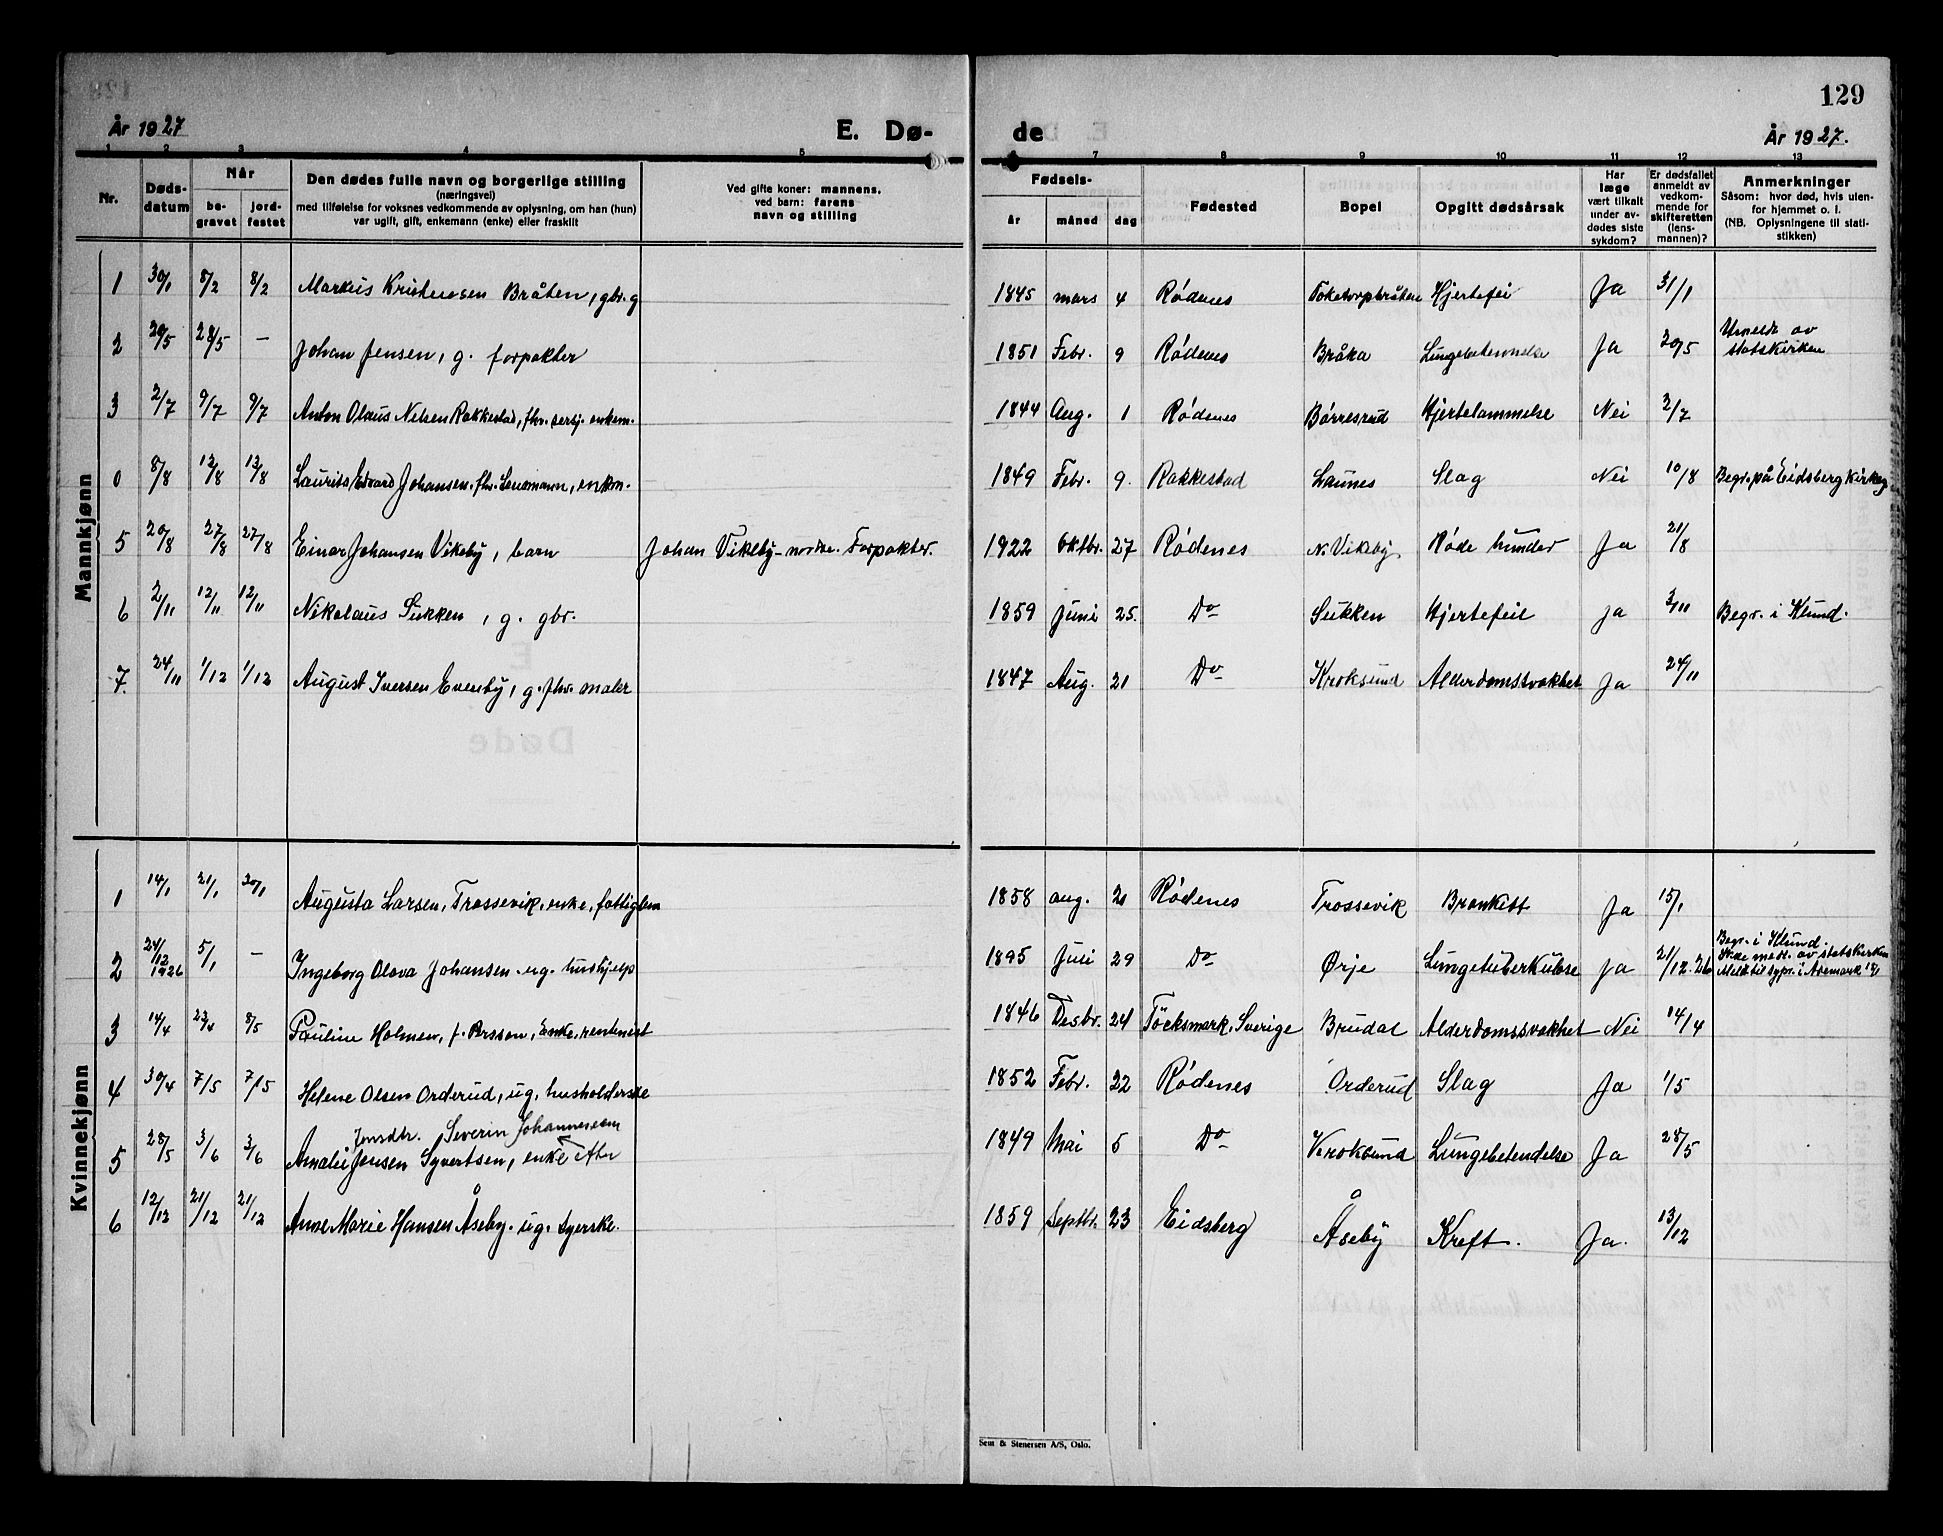 129
År 1927 E. Dø- de År 1927.
1 2 3 4 5 7 8 9 10 11 12 13
Nr. Døds-datum Når be-gravet jord-festet
Den dødes fulle navn og borgerlige stilling
(næringsvei)
med tilføielse for voksnes vedkommende av oplysning, om han (hun)
var ugift, gift, enkemann (enke) eller fraskilt
Ved gifte koner: mannens.
ved barn: farens
navn og stilling
Fødsels- år måned dag
Fødested Bopel Opgitt dødsårsak
Har læge vært tilkalt under av-dødes siste sykdom?
Er dødsfallet anmeldt av vedkom-mende for skifteretten (lens-mannen)?
Anmerkninger
Såsom: hvor død, hvis uten-
for hjemmet o. l.
(NB. Oplysningene til stati-
stikken)
Mannkjønn
1 30/1 8/2 8/2 Markus Kristensen Bråten, gbr. g 1845 mars 4 Rødenes Toketorpbråten Hjertefei Ja 31/1
2 20/5 28/5 — Johan Jensen, g. forpakter 1851 Febr. 9 Rødenes Bråka Lungebetennelse Ja 20/5 Utmeldt av statskirken
3 2/7 9/7 9/7 Anton Olaus Nilsen Rakkestad, fhv. sersj. enkem. 1844 Aug. 1 Rødenes Børresrud Hjertelammelse Nei 2/7
0 8/8 13/8 13/8 Laurits Edvard Johansen. fhv. Lensmann, enkm. 1849 Febr. 9. Rakkestad Launes Slag Nei 10/8 Begr. på Eidsberg Kirkeg
5 20/8 27/8 27/8 Einar Johansen Vikeby, barn Johan Vikeby nordre. Forpakter. 1922 Oktbr. 27 Rødenes N. Vikeby Røde hunder Ja 21/8
6 2/11 12/11 12/11 Nikolaus Sukken, g. gbr. 1859 Juni 25. Do Sukken Hjertefeil ja 3/11 Begr. i Klund.
7. 24/11 1/12 1/12 August Iversen Evenby, g. fhv. maler 1847 Aug. 21 Do Kroksund Alderdomssvakhet Ja 24/11
Kvinnekjønn
1 14/1 21/1 20/1 Augusta Larsen, Trossevik, enke, fattiglem 1858 aug. 2 Rødenes Trossevik Bronkitt Ja 15/1
2 24/12 1926 5/1 — Ingeborg Olava Johansen. ug. hushjelp 1895 Juli 29 Do Ørje Lungetuberkulose ja 21/12.26 Begr. i Klund. Ikke medl. av statskirken
3 14/4 23/4 8/5 Pauline Holmen, f. Persson, Enke, rentenist 1846 Desbr. 24 Töcksmark, Sverige Brudal Alderdomssvakhet Nei 14/4
4 30/4 7/5 7/5 Helene Olsen Orderud, ug. husholderske 1852 Febr. 22 Rødenes Orderud Slag Ja 1/5
5 28/5 3/6 3/6 Amalie Jensen Syvertsen, enke etter Jensdtr. Severin Johannessen 1849 Mai 5 Do Kroksund Lungebetendelse Ja 28/5
6 12/12 21/12 21/12 Anne Marie Hansen Åseby. ug. syerske. 1859 Septbr. 23 Eidsberg Åseby Kreft. Ja. 13/12
Sem & Stenersen A/S, Oslo.